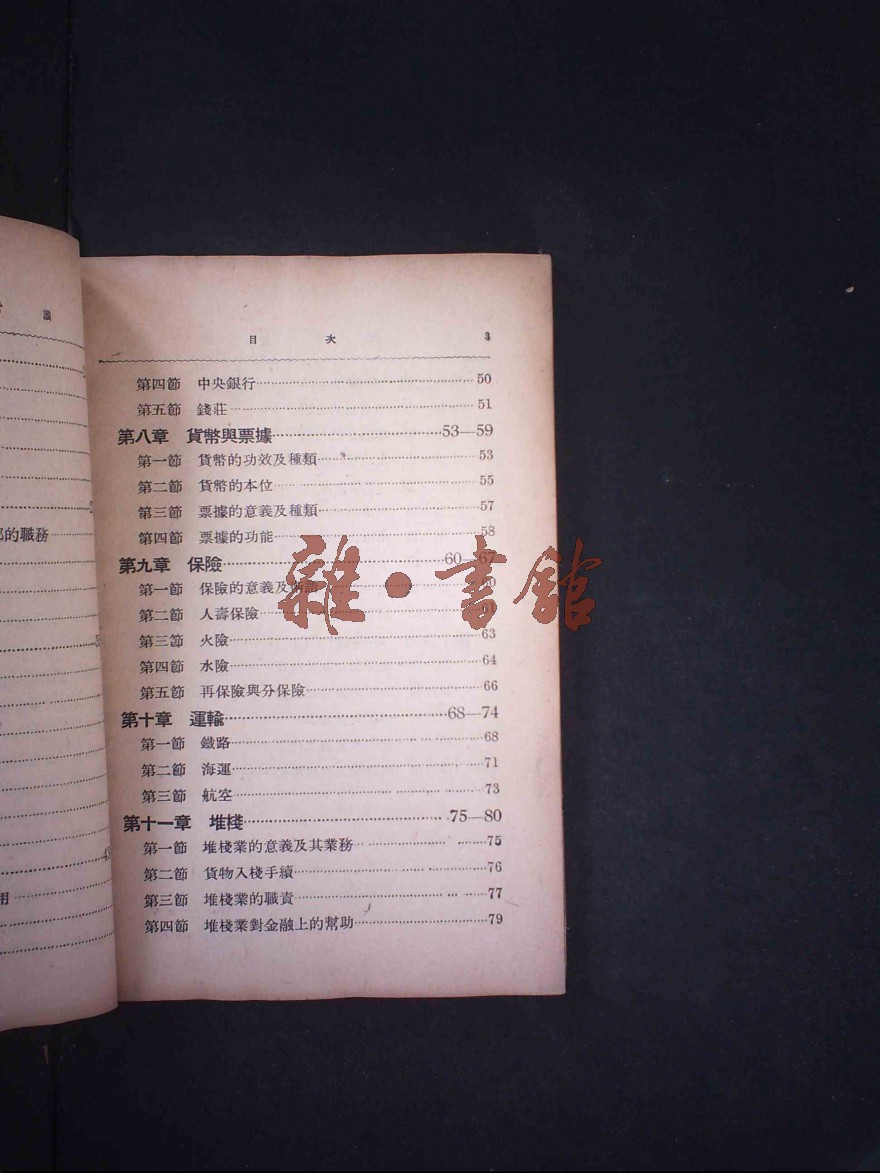 論
部的職務
用
目 次 3
第四節 中央銀行 50
第五節 錢莊 51
第八章 貨幣與票據 53—59
第一節 貨幣的功效及種類 53
第二節 貨幣的本位 55
第三節 票據的意義及種類 57
第四節 票據的功能 58
第九章 保險 60—67
第一節 保險的意義及 60
第二節 人壽保險 61
第三節 火險 63
第四節 水險 64
第五節 再保險與分保險 66
第十章 運輸 68—74
第一節 鐵路 68
第二節 海運 71
第三節 航空 73
第十一章 堆棧 75—80
第一節 堆棧業的意義及其業務 75
第二節 貨物入棧手續 76
第三節 堆棧業的職責 77
第四節 堆棧業對金融上的幫助 79
雜·書館